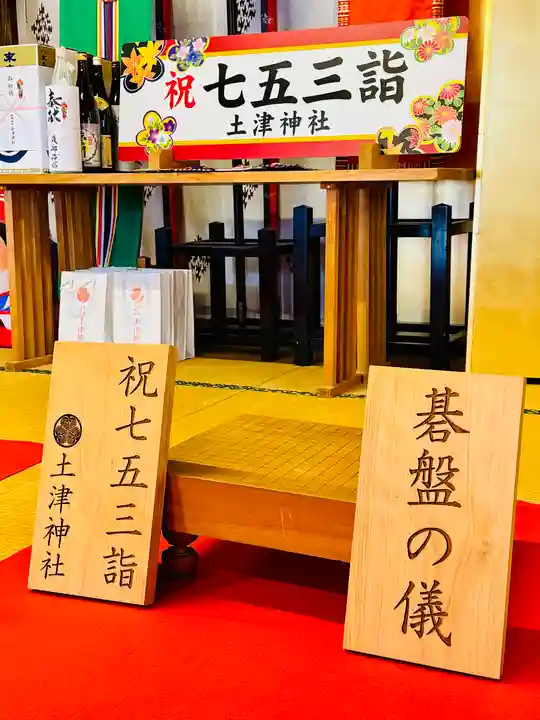 祝 七五三詣
土津神社
奉献
祝七五三詣
土津神社
碁盤の儀